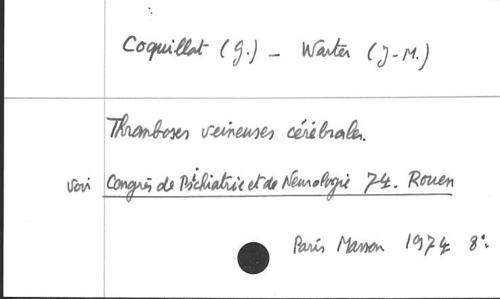 Coquillat (G.) - Warter (J-M.)
Thromboses veineuses cérébrales.
voir Congrès de Psichiatrie et de Neurologie 74. Rouen
Paris Masson 1974 8°.